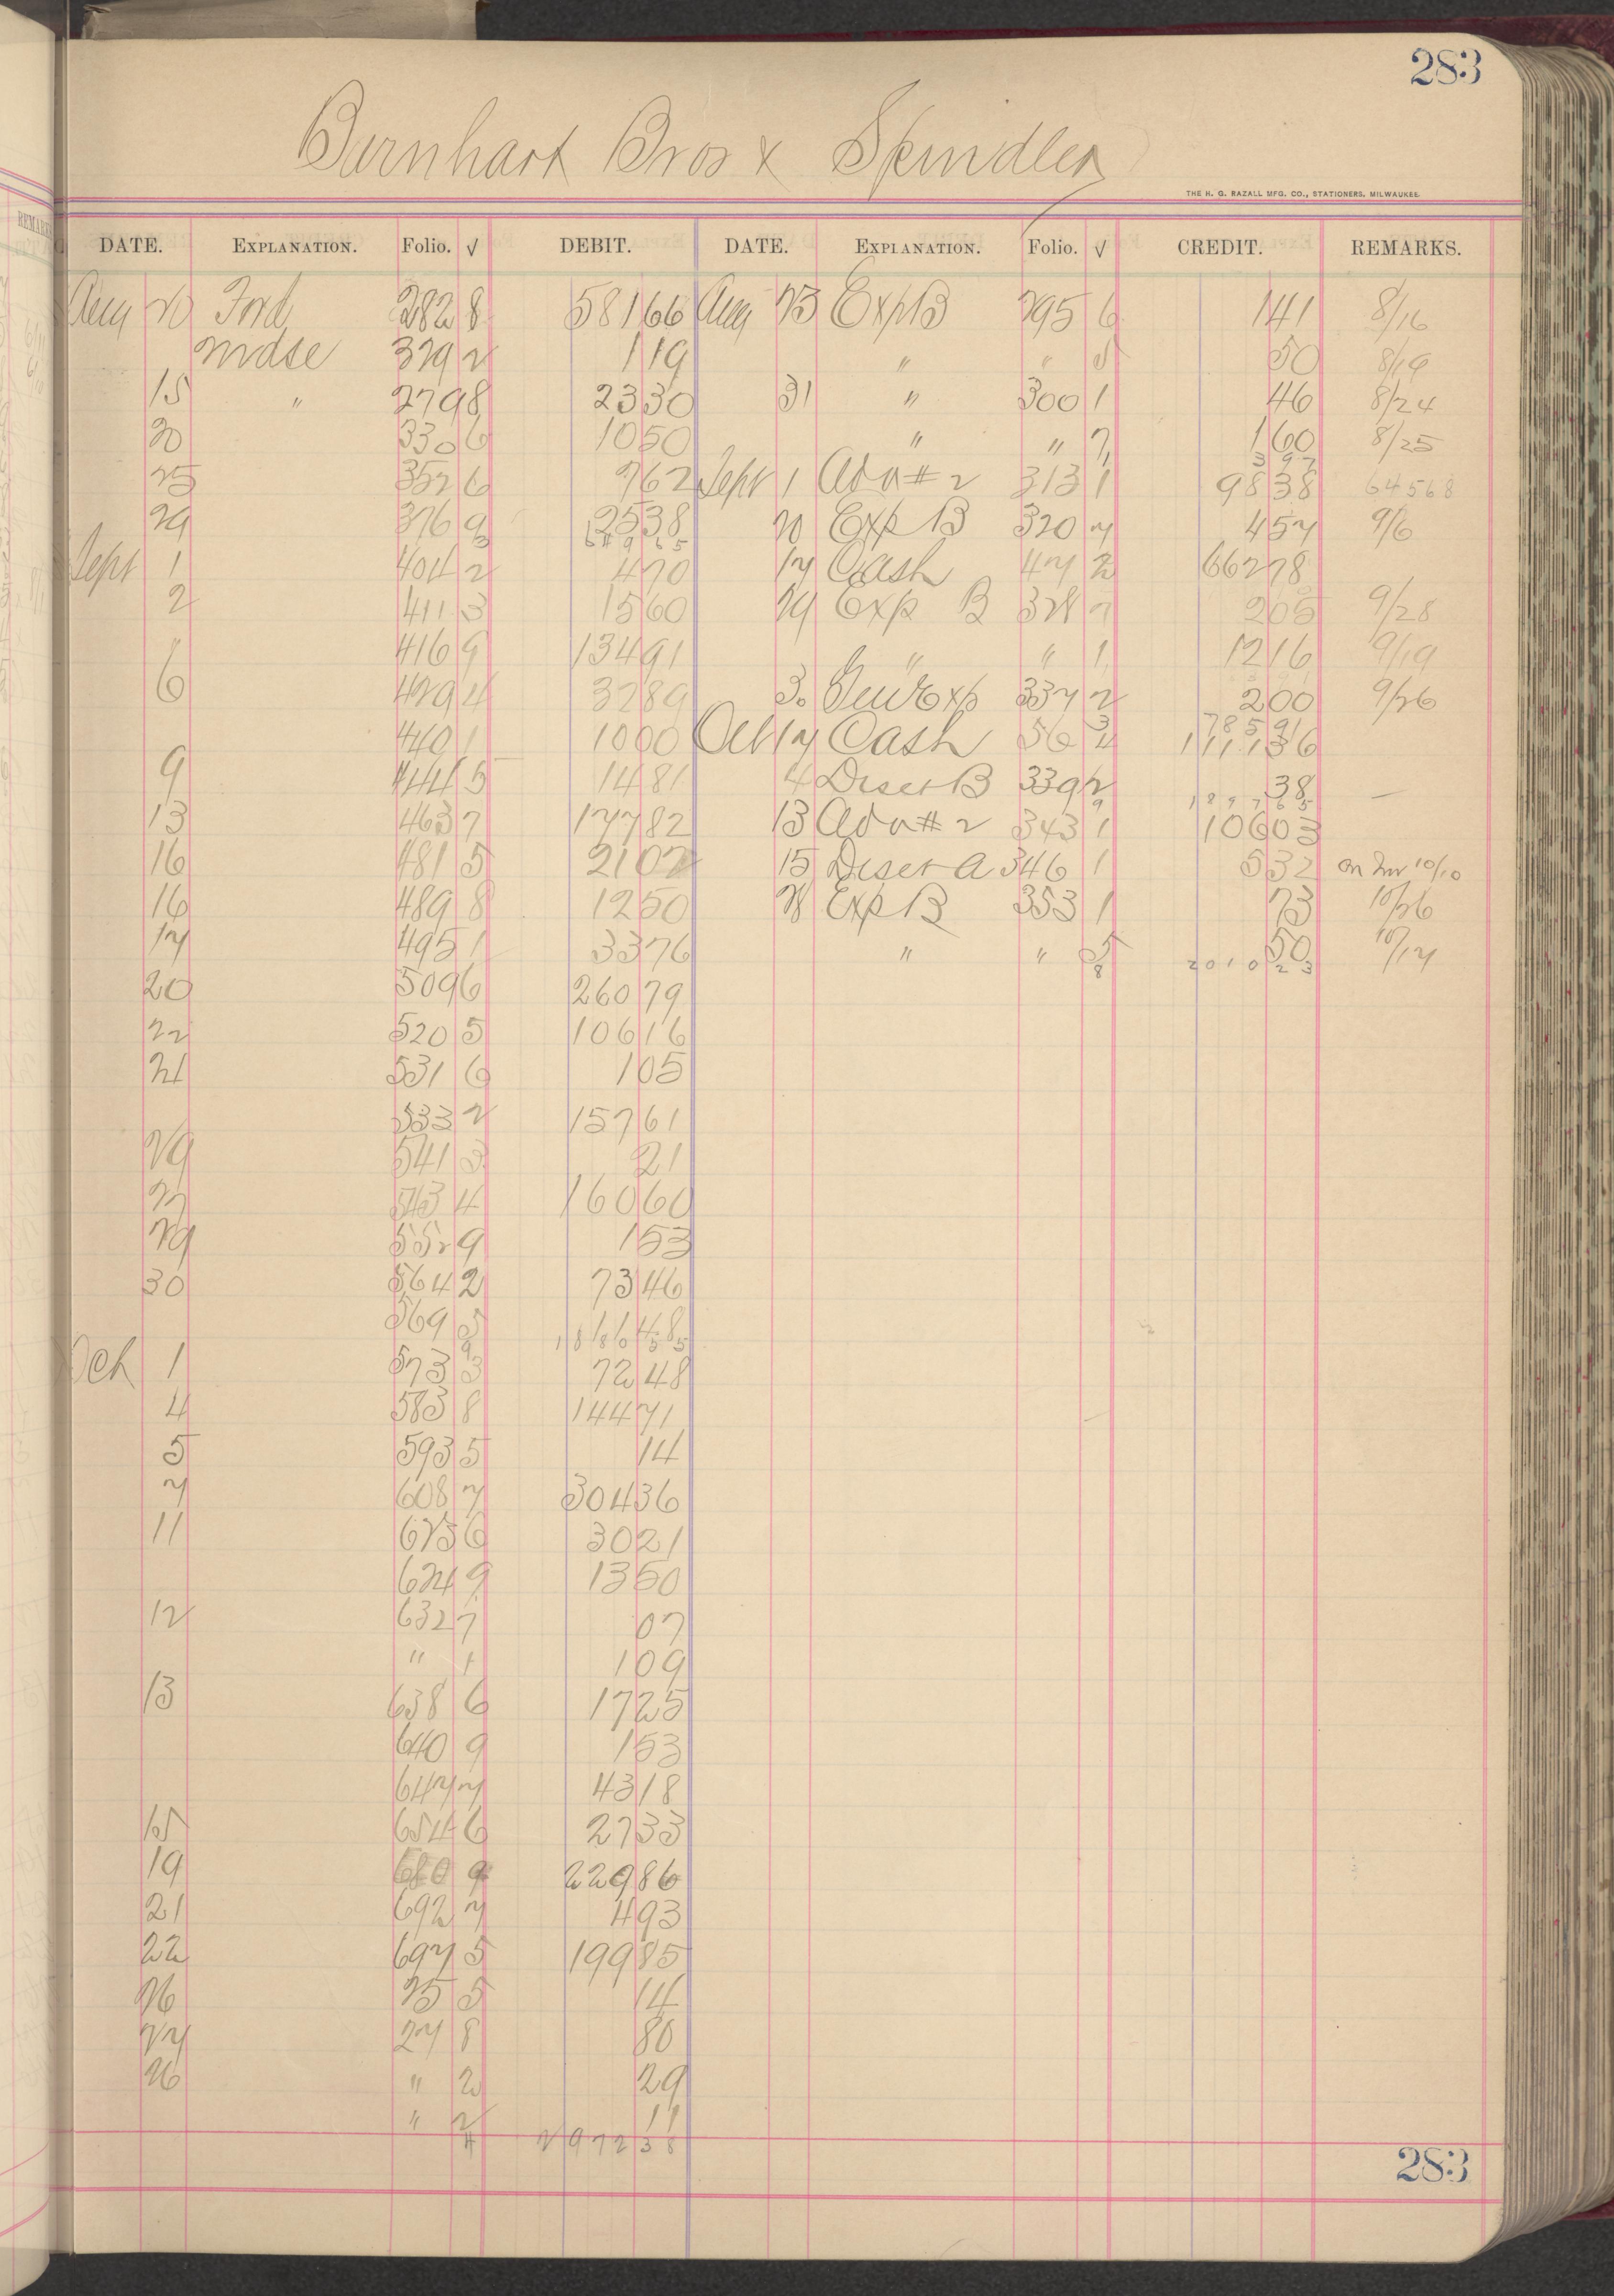 283
Barnhart Bros & Spindler
THE H. G. RAZALL MFG. CO., STATIONERS, MILWAUKEE.
DATE. EXPLANATION. Folio. √ DEBIT. DATE. EXPLANATION. Folio. √ CREDIT. REMARKS.
Aug 20 Ford 282 8 581 66 Aug 23 Exp B 295 6 1 41 8/16
Mdse 379 2 1 19 " " 5 50 8/19
15 " 279 8 23 30 31 " 300 1 46 8/24
20 330 6 10 50 " " 7 1 60 8/25
3 97
25 352 6 7 62 Sept 1 Adv # 2 313 1 98 38 645 68
29 376 9 25 38 20 Exp B 320 7 4 57 9/6
649 65
Sept 1 404 2 4 70 17 Cash 47 2 662 78
2 411 3 15 60 29 Exp B 328 7 2 05 9/28
" 416 9 134 91 " " 1 12 16 9/19
6 429 4 32 89 30 Genl Exp 337 2 2 00 9/26
785 91
440 1 10 00 Oct 17 Cash 56 4 1111 36
9 444 5 14 81 4 Disct B 339 2 38 —
1897 65
13 463 7 177 82 13 Adv # 2 343 1 106 03
16 481 5 21 02 15 Disct A 346 1 5 32 on Inv 10/10
16 489 8 12 50 28 Exp B 353 1 73 10/26
17 495 1 33 76 " " 5 50 10/17
8 2010 23
20 509 6 260 79
22 520 5 106 16
21 531 6 1 05
533 2 157 61
29 541 3 21
27 543 4 160 60
29 552 9 1 53
30 564 2 73 46
569 5
1866 55
Oct 1 573 3 72 48
4 583 8 144 71
5 593 5 14
7 608 7 304 36
11 623 6 30 21
624 9 13 50
12 632 7 07
" 1 1 09
13 638 6 17 25
640 9 1 53
647 7 43 18
15 654 6 27 33
19 680 9 229 86
21 692 7 4 93
22 697 5 199 85
26 25 5 14
27 27 8 80
26 " 2 29
" 2 11
4 2972 38
283